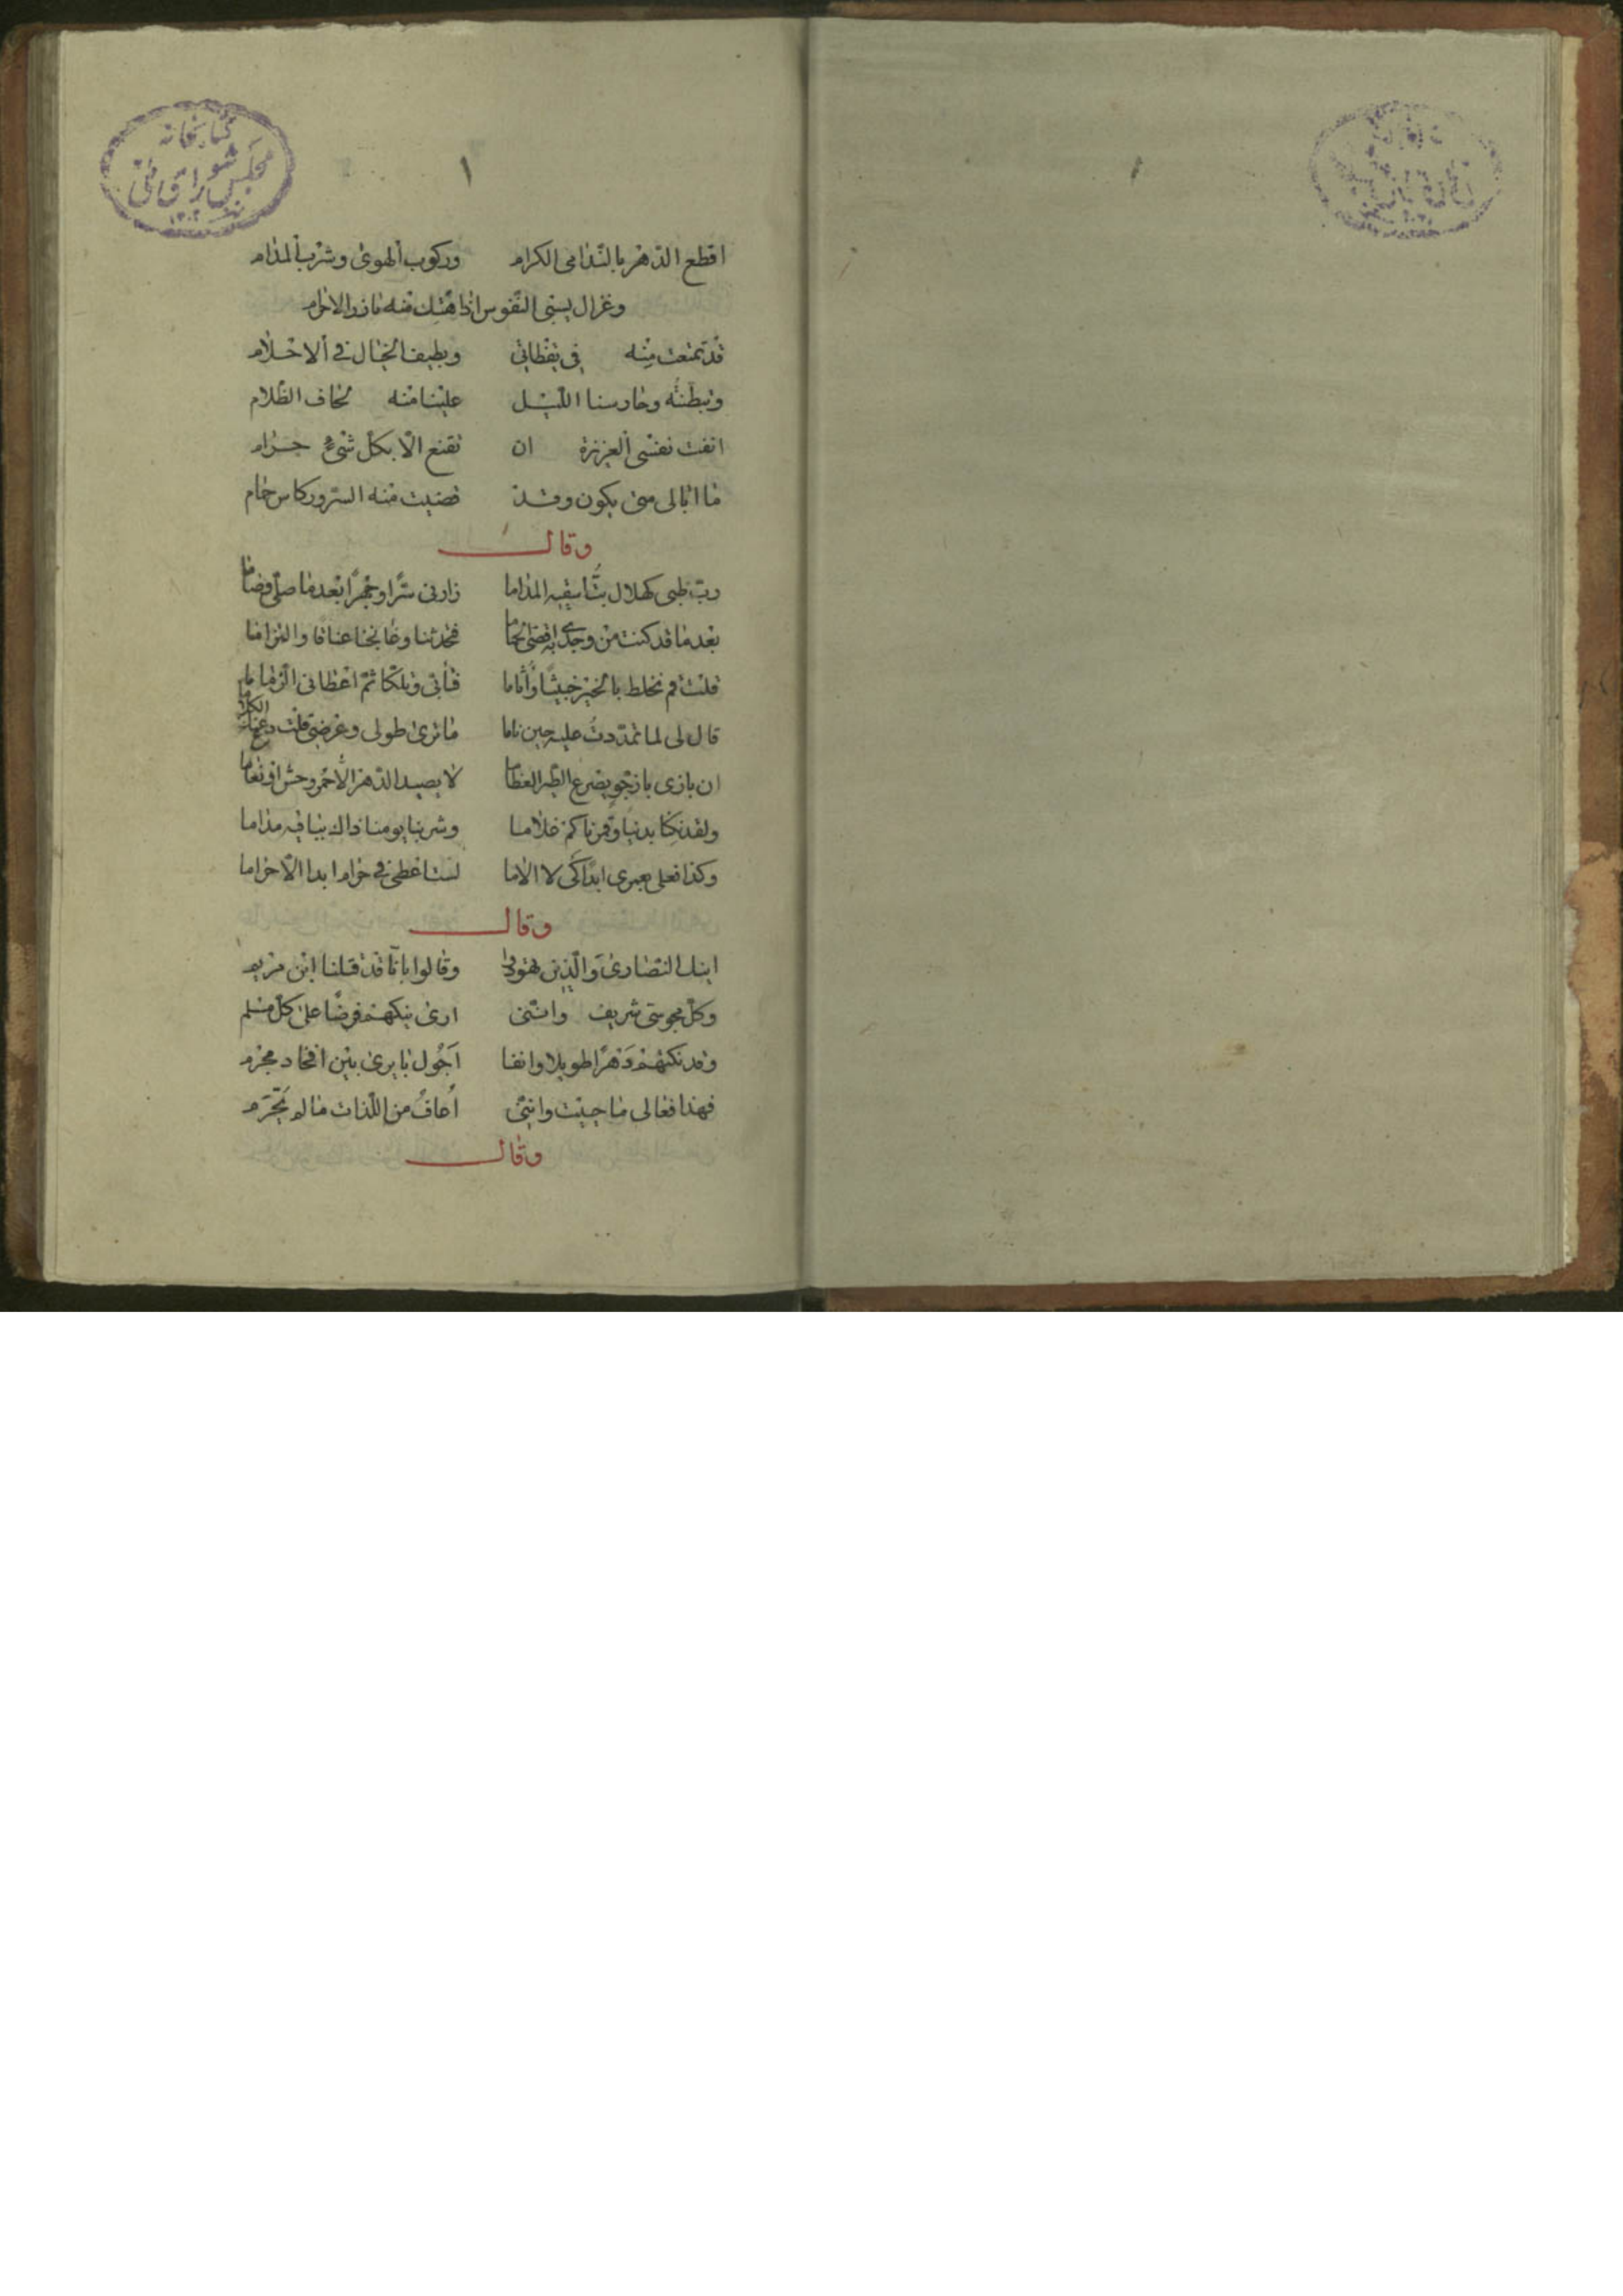 كتابخانه
مجلس شورای ملی
١
اقطع الدّهر بالنّدامى الكرام وركوب الهوى وشرب المدام
وغزال يسبى النّفوس اذا هتك منه مازر الاحرام
قد تمتعت منه فى يقظاتى وبطيف الخيال فى الاحلام
وتبطنته وحارسنا اللّيل علينا منه لحاف الظّلام
انفت نفسى العزيزة ان تقنع الّا بكل شىء حرام
ما ابالى متى يكون وقد قضيت منه السّرور كاس حمام
وقال
ربّ ظبى كهلال بتّ اسقيه المداما زارنى سرّا وجهرا بعد ما صلّى وصاما
بعد ما قد كنت من وجدى به اقضى الحماما فتحدثنا وعانجنا عناقا والتزاما
قلت قم نخلط بالخير خبيثا واثاما فأبى وتلكّا ثمّ اعطانى الزّماما
قال لى لما تمدّدت عليه حين ناما ما ترى طولى وعرضى قلت دع عنك الكلاما
ان بازى باز جوّ يصرع الطير العظاما لا يصيد الدّهر الّا حمر وحش او نعاما
ولقد نكنا بدنيا وقمرنا كم غلاما وشربنا يومنا ذاك بنيافيه مداما
وكذا فعلى بعمرى ابدا كى لا الاما لست اعطى فى حرام ابدا الّا حراما
وقال
انيك النّصارى والّذين تهوّدوا وقالوا بانّا قد قتلنا ابن مريم
وكلّ مجوسىّ شريف وانّنى ارى نيكهم فرضا على كل مسلم
وقد نكتهم دهرا طويلا وانفا اجول بايرى بين افخاد مجرم
فهذا فعالى ما حييت وانّنى اعاف من اللّذات ما لم تحرّم
وقال